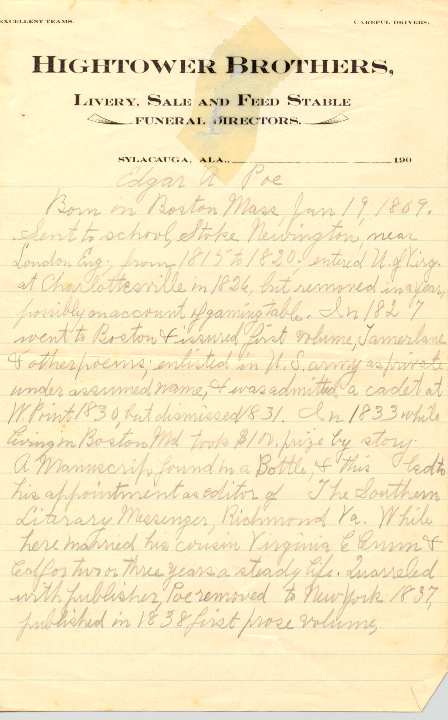 EXCELLENT TEAMS. CAREFUL DRIVERS.
HIGHTOWER BROTHERS,
LIVERY, SALE AND FEED STABLE
FUNERAL DIRECTORS.
SYLACAUGA, ALA., 190
Edgar A Poe
Born on Boston Mass Jan 19, 1809.
Sent to school, Stoke Newington, near
London Eng. from 1815 to 1820, entered U. of Virg.
at Charlottesville in 1826, but removed in a year,
possibly on account of gaming table. In 1827
went to Boston & issured first volume, Tamerlane
& other poems; enlisted in U.S. army as private
under assumed name, & was admitted a cadet at
W. Point 1830, but dismissed 1831. In 1833 while
living in Boston Md took $100. prize by story
A Manuscrip, found in a Bottle, & this led to
his appointment as editor of The Southern
Literary Messenger, Richmond Va. While
here married his cousin Virginia E Clemm &
for two or three years a steady life. Quarreled
with publisher, Poe removed to New York 1837,
published in 1838, first prose volume,